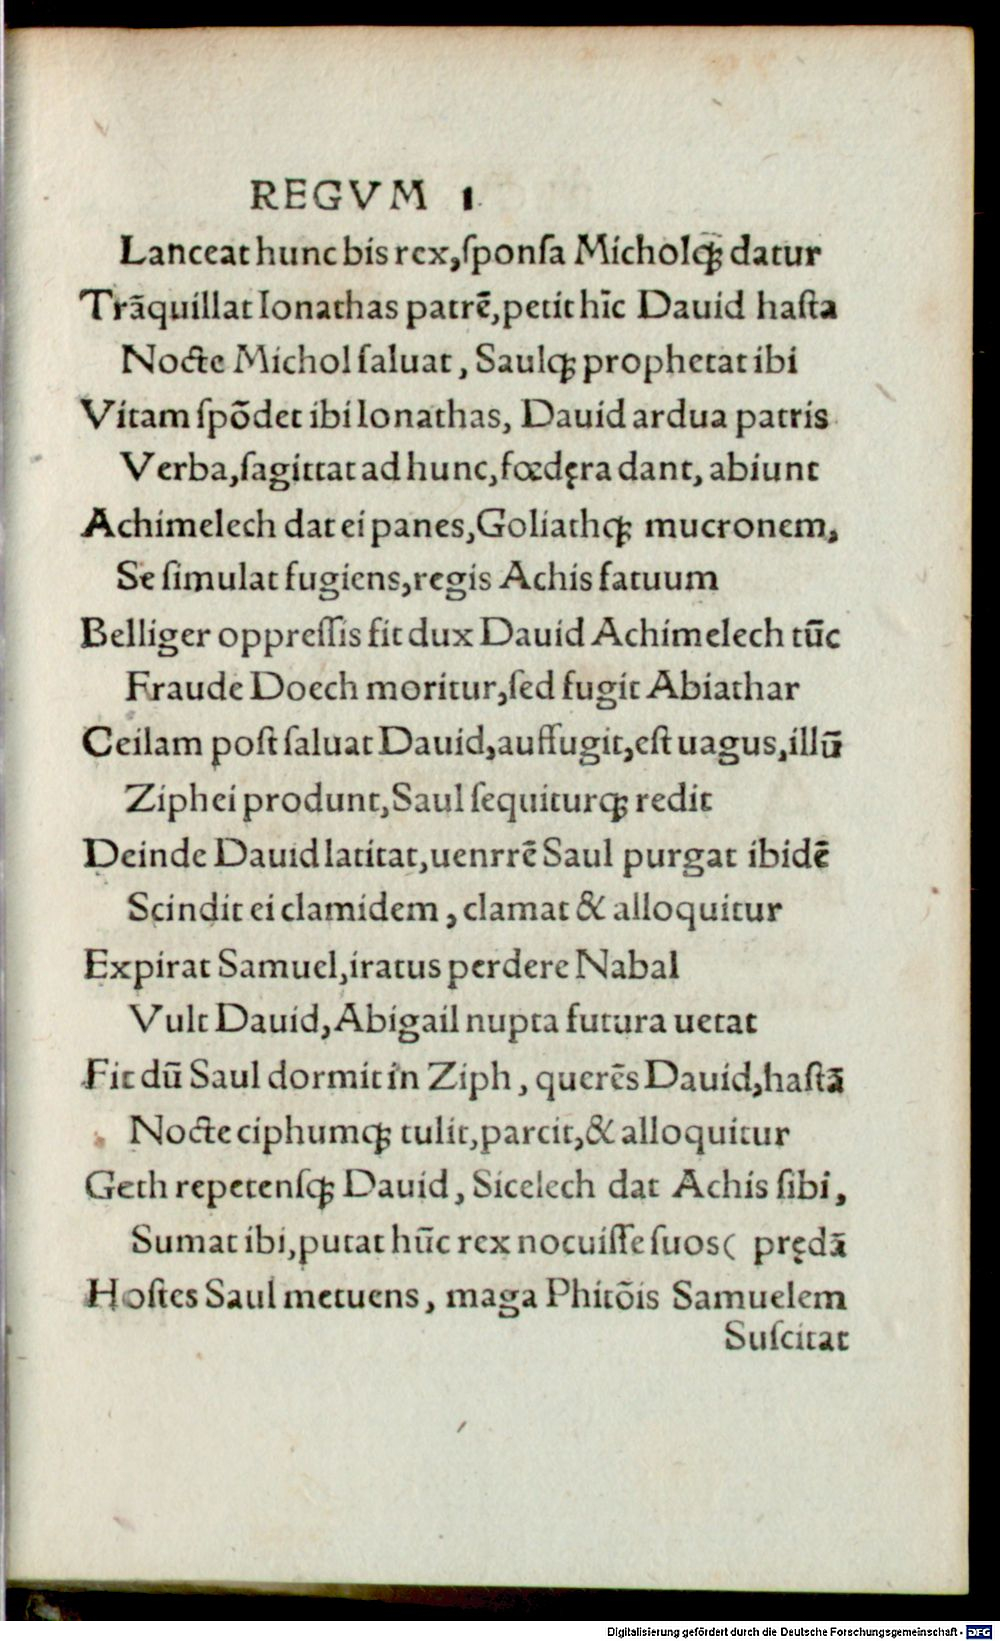 REGVM 1
Lanceat hunc bis rex, ſponſa Micholqꝫ datur
Trāquillat Ionathas patrē, petit hīc Dauid haſta
Nocte Michol ſaluat, Saulqꝫ prophetat ibi
Vitam ſpōdet ibi Ionathas, Dauid ardua patris
Verba, ſagittat ad hunc, fœdęra dant, abiunt
Achimelech dat ei panes, Goliathqꝫ mucronem,
Se ſimulat fugiens, regis Achis fatuum
Belliger oppreſſis fit dux Dauid Achimelech tūc
Fraude Doech moritur, ſed fugit Abiathar
Ceilam poſt ſaluat Dauid, auffugit, eſt uagus, illū
Ziphei produnt, Saul ſequiturqꝫ redit
Deinde Dauid latitat, uenrrē Saul purgat ibidē
Scindit ei clamidem, clamat & alloquitur
Expirat Samuel, iratus perdere Nabal
Vult Dauid, Abigail nupta futura uetat
Fit dū Saul dormit in Ziph, querēs Dauid, haſtā
Nocte ciphumqꝫ tulit, parcit, & alloquitur
Geth repetenſqꝫ Dauid, Sicelech dat Achis ſibi,
Sumat ibi, putat hūc rex nocuiſſe ſuos( prędā
Hoſtes Saul metuens, maga Phitōis Samuelem
Suſcitat
Digitalisierung gefördert durch die Deutsche Forschungsgemeinschaft - DFG